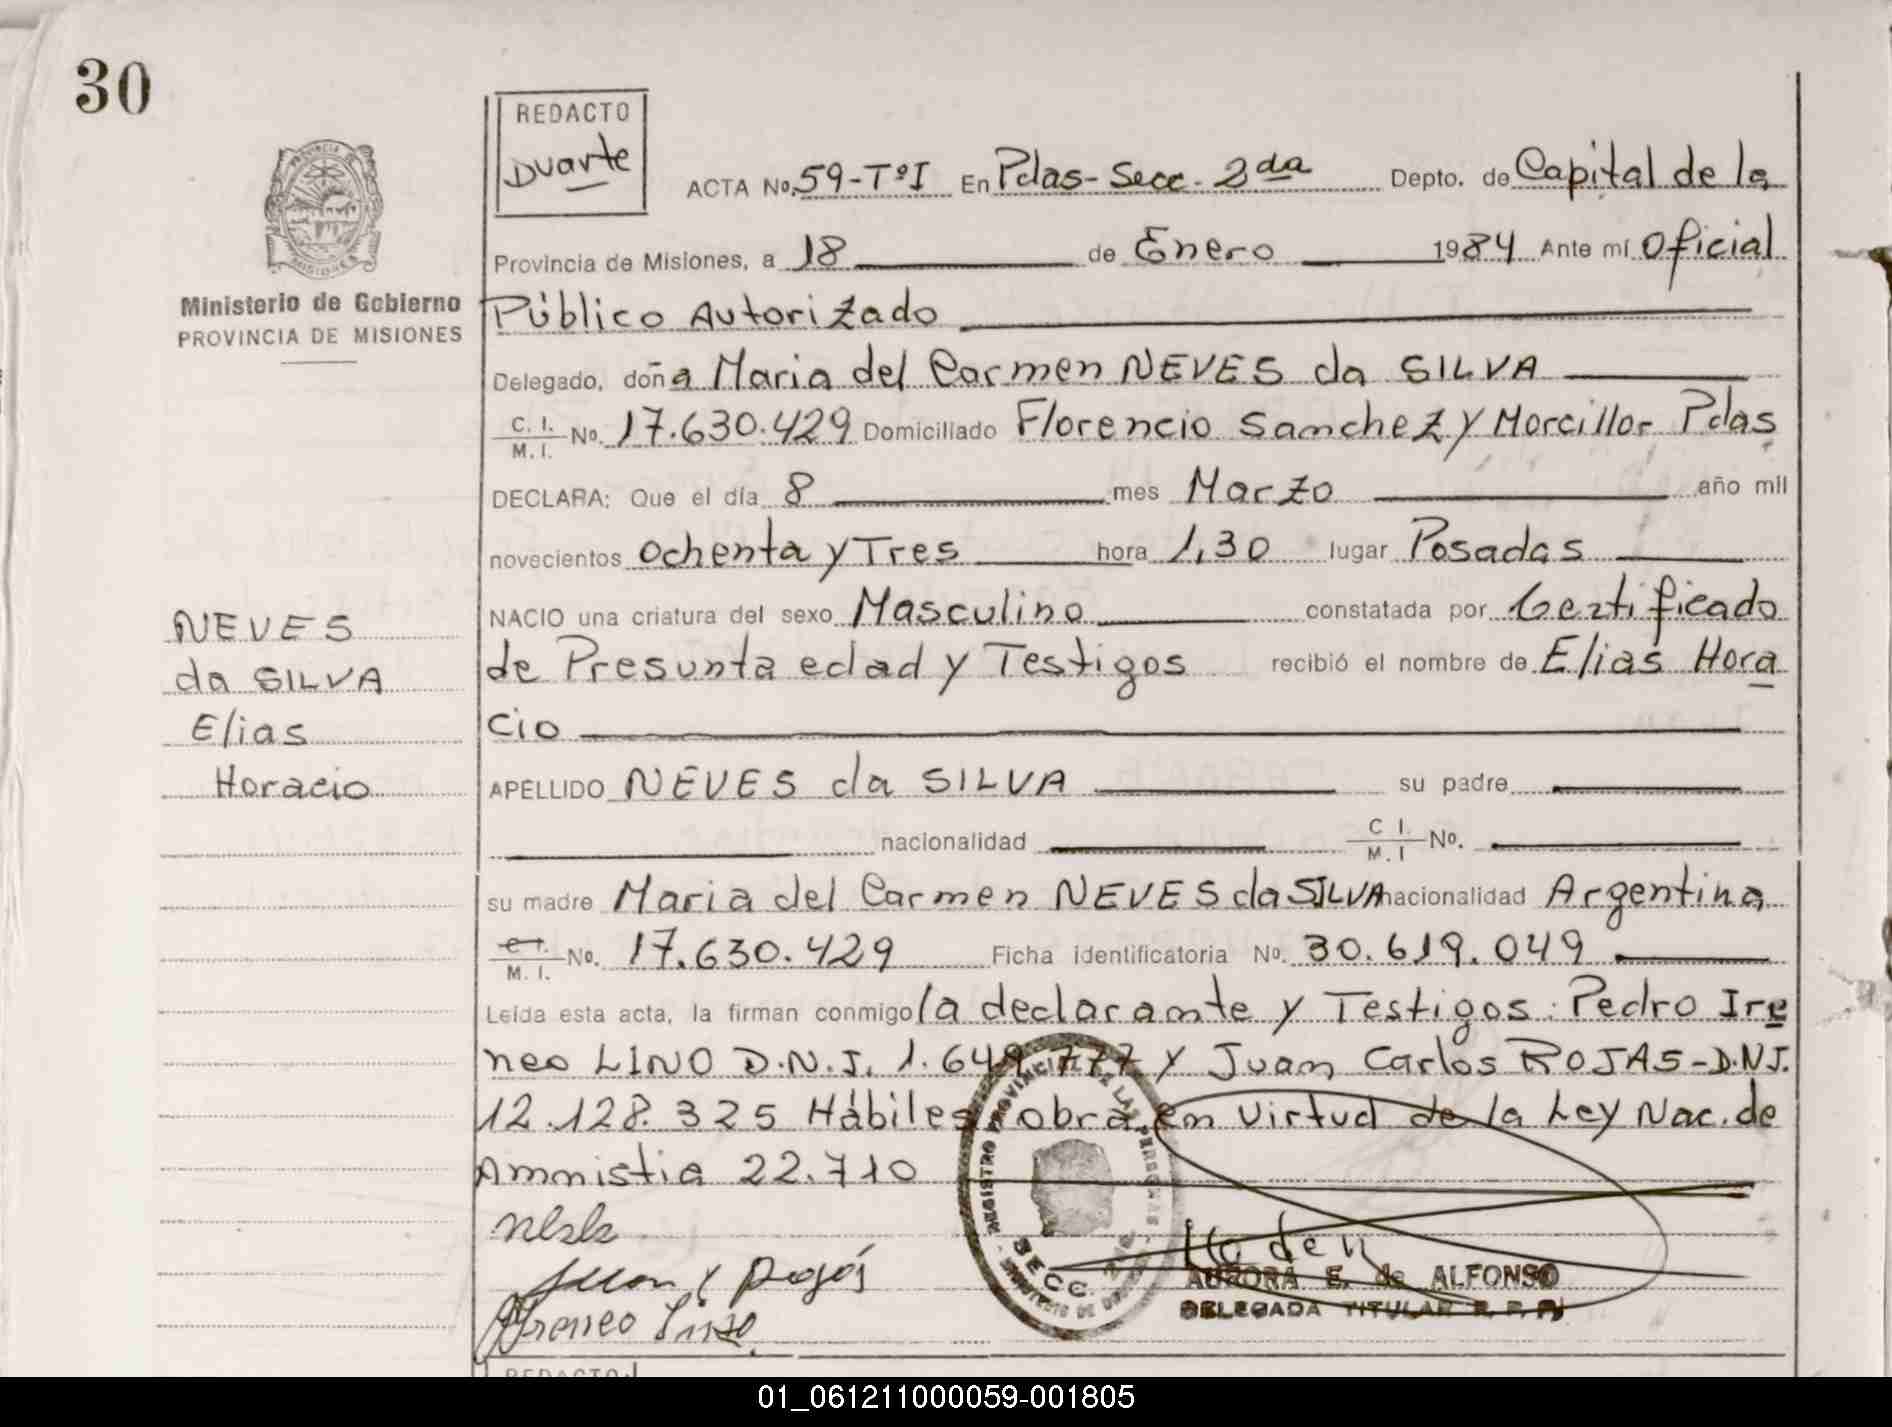 30
REDACTO
Duarte
ACTA No. 59-TºI En Pdas- Secc. 2da Depto. de Capital de la
PROVINCIA DE
MISIONES
Ministerio de Gobierno
PROVINCIA DE MISIONES
Provincia de Misiones, a 18 de Enero 1984 Ante mí Oficial
Público Autorizado
Delegado, doña Maria del Carmen NEVES da SILVA
C. I.
M. I. No. 17.630.429 Domiciliado Florencio Sanchez y Morcillor Pdas
DECLARA: Que el día 8 mes Marzo año mil
novecientos ochenta y Tres hora 1,30 lugar Posadas
NACIO una criatura del sexo Masculino constatada por Certificado
de Presunta edad y Testigos recibió el nombre de Elias Hora
cio
NEVES
da SILVA
Elias
Horacio
APELLIDO NEVES da SILVA su padre
nacionalidad C I. M. I No.
su madre Maria del Carmen NEVES da SILVA nacionalidad Argentina
C I. M. I. No. 17.630.429 Ficha identificatoria No. 30.619.049
Leída esta acta, la firman conmigo la declarante y Testigos: Pedro Ire
neo LINO D.N.I. 1.649.777 y Juan Carlos ROJAS-D.NI.
12.128.325 Hábiles obra en virtud de la Ley Nac. de
Amnistia 22.710
REGISTRO PROVINCIAL DE LAS PERSONAS
SECC. 2da
Ireneo Lino
AURORA E. de ALFONSO
DELEGADA TITULAR R. P. P.
REDACTO:
01_061211000059-001805